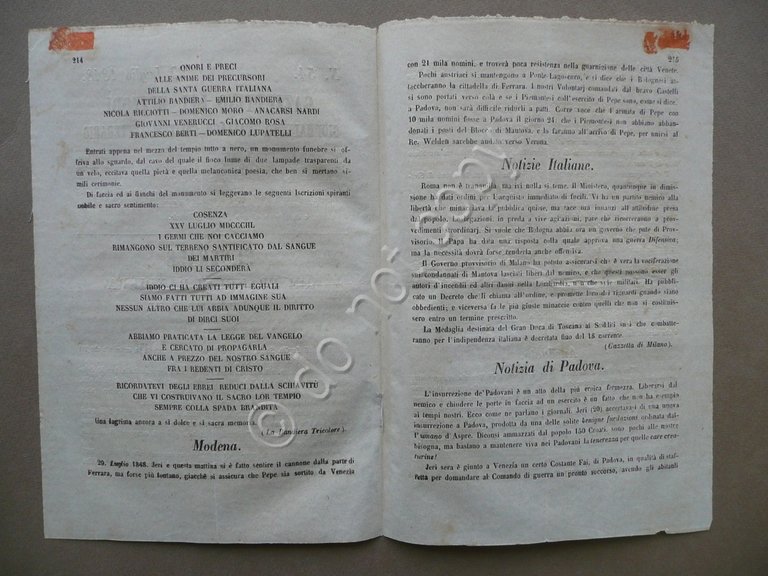 214
ONORI E PRECI
ALLE ANIME DEI PRECURSORI
DELLA SANTA GUERRA ITALIANA
ATTILIO BANDIERA – EMILIO BANDIERA
NICOLA RICCIOTTI – DOMENICO MORO – ANACARSI NARDI
GIOVANNI VENERUCCI – GIACOMO ROSA
FRANCESCO BERTI – DOMENICO LUPATELLI
Entrati appena nel mezzo del tempio tutto a nero, un monumento funebre si of-
friva allo sguardo, dal caso del quale il fioco lume di due lampade trasparenti da
un velo, eccitava quella pietà e quella melanconica poesia, che ben si mertano simi-
li cerimonie.
Di faccia ed ai fianchi del monumento si leggevano le seguenti Iscrizioni spiranti
nobile e sacro sentimento:
COSENZA
XXV LUGLIO MDCCCXL
I GERMI CHE NOI CACCIAMO
RIMANGONO SUL TERRENO SANTIFICATO DAL SANGUE
DEI MARTIRI
IDDIO LI SECONDERÀ
IDDIO CI HA CREATI TUTTI EGUALI
SIAMO FATTI TUTTI AD IMMAGINE SUA
NESSUN ALTRO CHE LUI ABBIA ADUNQUE IL DIRITTO
DI DIRCI SUOI
ABBIAMO PRATICATA LA LEGGE DEL VANGELO
E CERCATO DI PROPAGARLA
ANCHE A PREZZO DEL NOSTRO SANGUE
FRA I REDENTI DI CRISTO
RICORDATEVI DEGLI EBREI REDUCI DALLA SCHIAVITÙ
CHE VI COSTRUIVANO IL SACRO LOR TEMPIO
SEMPRE COLLA SPADA BRANDITA
Una lagrima ancora a sì dolce e sì sacra memoria.
(La Bandiera Tricolore)
Modena.
29. Luglio 1848. Jeri e questa mattina si è fatto sentire il cannone dalla parte di
Ferrara, ma forse più lontano, giacchè si assicura che Pepe sia sortito da Venezia
con 21 mila uomini, e troverà poca resistenza nella guarnigione delle città Venete.
Pochi austriaci si mantengono a Ponte-Lago-scuro, e si dice che i Bolognesi at-
taccheranno la cittadella di Ferrara. I nostri Volontarj comandati dal bravo Castelli
si sono portati verso colà e se i Piemontesi coll'esercito di Pepe sono, come si dice,
a Padova, non sarà difficile ridurli a patti. Corre voce che l'armata di Pepe con
10 mila uomini fosse a Padova il giorno 24, che i Piemontesi non abbiano abban-
donati i posti del Blocco di Mantova, e la faranno all'arrivo di Pepe, per unirsi al
Re. Welden sarebbe andato verso Verona.
Notizie Italiane.
Roma non è tranquilla, ma ivi nulla si teme. Il Ministero, quantunque in dimissione
ha dati ordini per l'acquisto immediato di fucili. Vi ha un partito nemico alla
libertà che minacciava la pubblica quiete, ma tace ma innanzi all'attitudine presa
dal popolo. Le Legazioni, in preda a vive agitazioni, pare che ricorreranno a
provvedimenti straordinarj. Si vuole che Bologna abbia ora un governo che pute di Prov-
visorio. Il Papa ha data una risposta colla quale approva una guerra Difensiva;
ma la necessità dovrà forse renderla anche offensiva.
Il Governo provvisorio di Milano ha potuto assicurarsi che è vera la vociferazione
sui condannati di Mantova lasciati liberi dal nemico, e che questi possono esser gli
autori d'incendii ed altri danni nella Lombardia, non che servire militari. Ha pubbli-
cato un Decreto che li chiama all'ordine, e promette loro dei riguardi quando siano
obbedienti; e viceversa fa le più giuste minaccie contro quelli che non si costitui-
ssero entro un termine prescritto.
La Medaglia destinata dal Gran Duca di Toscana ai Soldati suoi che combatte-
ranno per l'indipendenza italiana è decretata fino dal 18 corrente.
(Gazzetta di Milano)
Notizia di Padova.
L'insurrezione de' Padovani è un atto della più eroica fermezza. Liberarsi dal
nemico e chiudere le porte in faccia ad un esercito è un fatto che non ha esempio
ai tempi nostri. Ecco come ne parlano i giornali. Jeri (20) accertavasi di una nuova
insorta a Padova, prodotta da una delle solite benigne fucilazioni ordinata dal-
l'umano d'Aspre. Diconsi ammazzati dal popolo 150 Croati, sono pochi alle nostre
bisogna, ma bastano a mantenere viva nei Padovani la tenerezza per quelle care crea-
turine!
Jeri sera è giunto a Venezia un certo Costante Fai, di Padova, in qualità di staf-
fetta per domandare al Comando di guerra un pronto soccorso, avendo gli abitanti
© do not copy